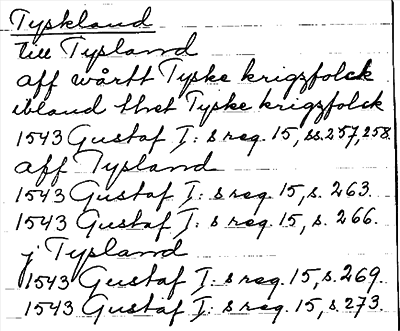 Tyskland
till Tysland
aff wårtt Tyske krigzfolck
ibland thet Tyske krigzfolck
1543 Gustaf I: s reg. 15, ss. 257, 258.
aff Tysland
1543 Gustaf I: s reg. 15, s. 263.
1543 Gustaf I: s reg. 15, s. 266.
j Tysland
1543 Gustaf I: s reg. 15, s. 269.
1543 Gustaf I: s reg. 15, s. 273.